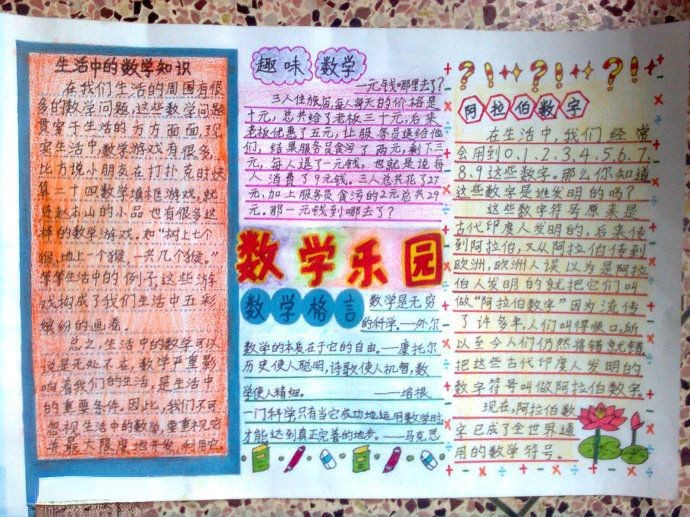 生活中的数学知识
在我们生活的周围有很
多的数学问题,这些数学问题
贯穿于生活的方方面面,现
实生活中,数学游戏有很多,
比方说小朋友在打扑克时快
算二十四数学填框游戏,就
连赵本山的小品也有很多这
样的数学游戏。如“树上七个
猴,地上一个猴,一共几个猴。”
等等生活中的例子,这些游
戏构成了我们生活中五彩
缤纷的画卷。
总之,生活中的数学可以
说是无处不在,数学严重影
响着我们的生活,是生活中
的重要条件。因此,我们不可
忽视生活中的数学,要重视它
并最大限度地开发、利用它
趣味数学
一元钱哪里去了?
三人住旅店,每人每天的价格是
十元,总共给了老板三十元,后来
老板优惠了五元,让服务员退给他
们,结果服务员贪污了两元,剩下三
元,每人退了一元钱,也就是说每
人消费了9元钱。三人总共花了27
元,加上服务员贪污的2元总共29
元。那一元钱到哪去了?
数学乐园
数学格言
数学是无穷
的科学。——外尔
数学的本质在于它的自由。——康托尔
历史使人聪明,诗歌使人机智,数
学使人精细。——培根
一门科学只有当它成功地运用数学时,
才能达到真正完善的地步。——马克思
阿拉伯数字
在生活中,我们经常
会用到0.1.2.3.4.5.6.7.
8.9这些数字。那么你知道
这些数字是谁发明的吗?
这些数字符号原来是
古代印度人发明的,后来传
到阿拉伯,又从阿拉伯传到
欧洲,欧洲人误以为是阿拉
伯人发明的就把它们叫
做“阿拉伯数字”因为流传
了许多年,人们叫得顺口,所
以至今人们仍然将错就错,
把这些古代印度人发明的
数字符号叫做阿拉伯数字。
现在,阿拉伯数
字已成了全世界通
用的数学符号。